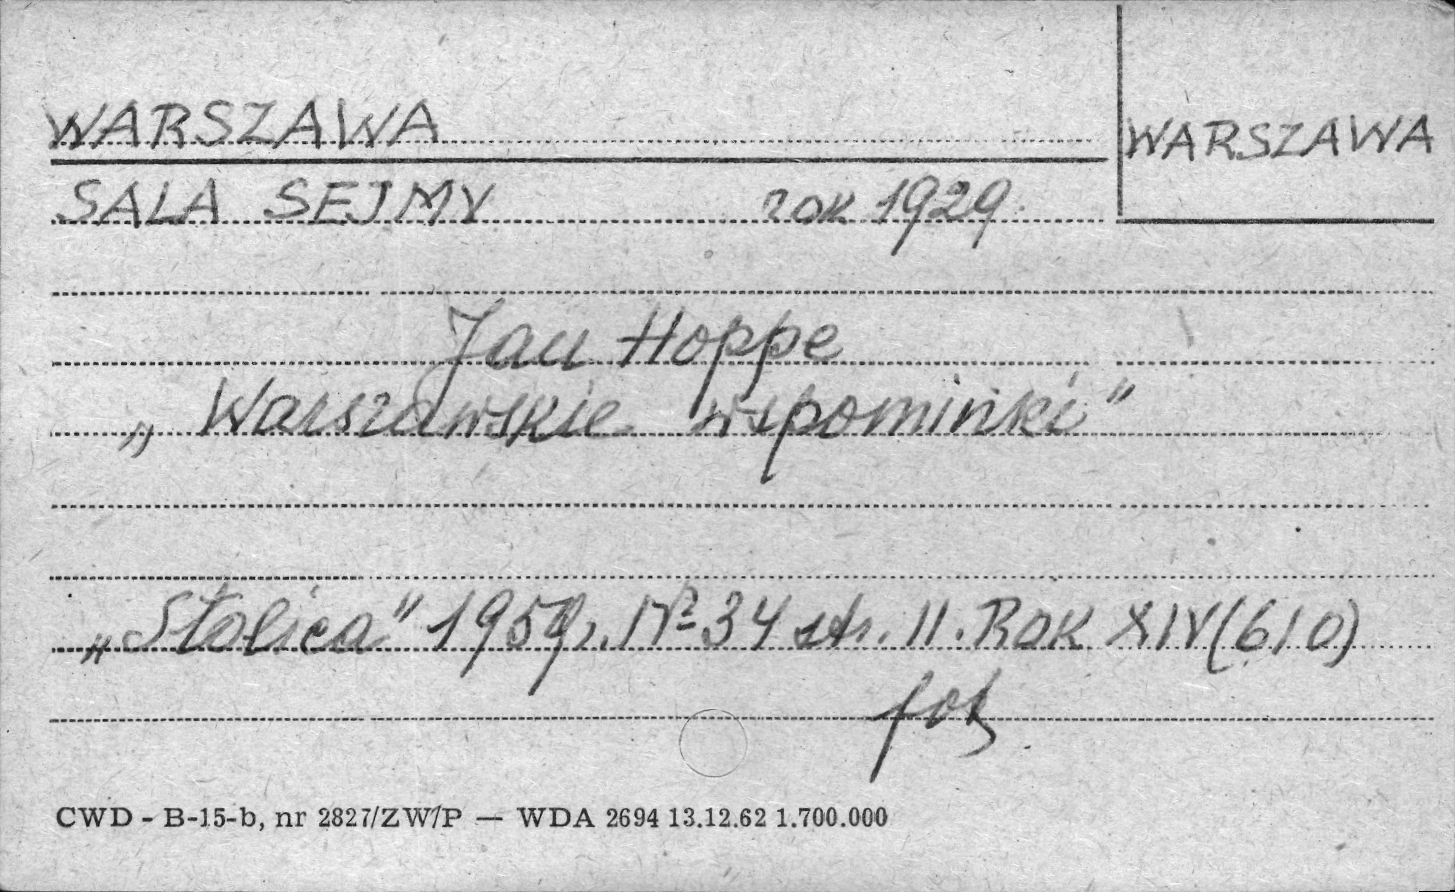 WARSZAWA
WARSZAWA
SALA SEJMY rok 1929
Jan Hoppe
„Warszawskie wspominki”
„Stolica” 1959 r. Nº 34 str. 11. Rok XIV (610)
fot.
CWD - B-15-b, nr 2827/ZW/P — WDA 2694 13.12.62 1.700.000